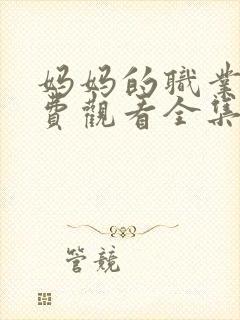 妈妈的職業
費觀看全集
管競